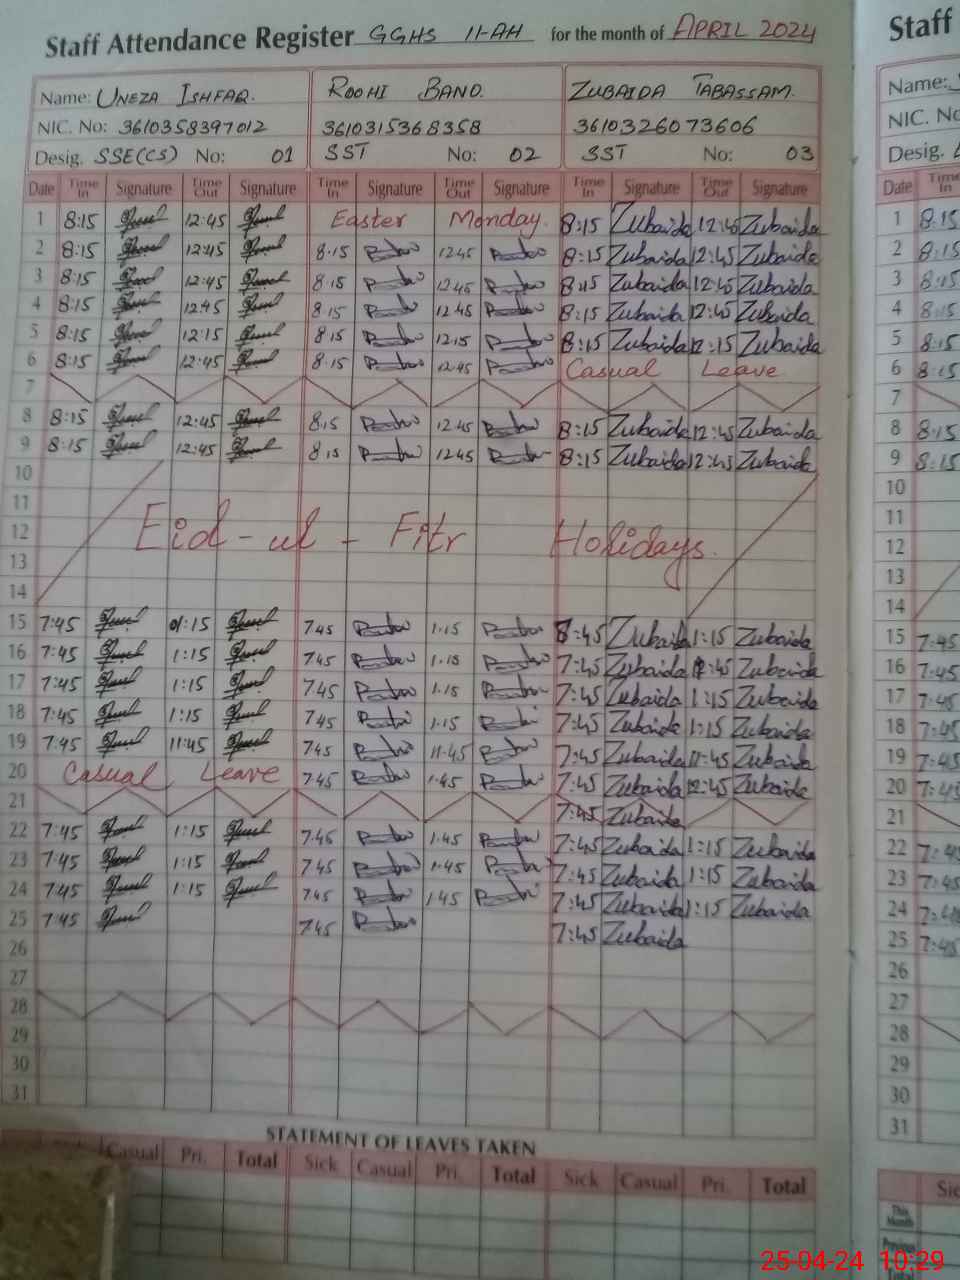 Staff Attendance Register GGHS 11-AH for the month of APRIL 2024
Name: UNEZA ISHFAQ. ROOHI BANO. ZUBAIDA TABASSAM.
NIC. No: 3610358397012 3610315368358 3610326073606
Desig. SSE(CS) No: 01 SST No: 02 SST No: 03
Date Time In Signature Time Out Signature Time In Signature Time Out Signature Time In Signature Time Out Signature
1 8:15 12:45 Easter Monday. 8:15 Zubaida 12:45 Zubaida
2 8:15 12:45 8.15 12.45 8:15 Zubaida 12:45 Zubaida
3 8:15 12:45 8.15 12.45 8:15 Zubaida 12:45 Zubaida
4 8:15 12:45 8.15 12.45 8:15 Zubaida 12:45 Zubaida
5 8:15 12:15 8.15 12.15 8:15 Zubaida 12:15 Zubaida
6 8:15 12:45 8.15 12.45 Casual Leave
7
8 8:15 12:45 8.15 12.45 8:15 Zubaida 12:45 Zubaida
9 8:15 12:45 8.15 12.45 8:15 Zubaida 12:45 Zubaida
10
11
12 Eid-ul-Fitr Holidays.
13
14
15 7:45 1:15 7.45 1.15 8:45 Zubaida 1:15 Zubaida
16 7:45 1:15 7.45 1.15 7:45 Zubaida Zubaida
17 7:45 1:15 7.45 1.15 7:45 Zubaida 1:15 Zubaida
18 7:45 1:15 7.45 1.15 7:45 Zubaida 1:15 Zubaida
19 7:45 11:45 7.45 11.45 7:45 Zubaida 11:45 Zubaida
20 Casual Leave 7.45 1.45 7:45 Zubaida 12:45 Zubaida
21 7:45 Zubaida
22 7:45 1:15 7.45 1.45 7:45 Zubaida 1:15 Zubaida
23 7:45 1:15 7.45 1.45 7:45 Zubaida 1:15 Zubaida
24 7:45 1:15 7.45 1.45 7:45 Zubaida 1:15 Zubaida
25 7:45 7.45 7:45 Zubaida
26
27
28
29
30
31
STATEMENT OF LEAVES TAKEN
Casual Pri. Total Sick Casual Pri. Total Sick Casual Pri. Total
Staff
Name:
NIC. No:
Desig.
Date Time In
1 8:15
2 8:15
3 8:15
4 8:15
5 8:15
6 8:15
7
8 8:15
9 8:15
10
11
12
13
14
15 7:45
16 7:45
17 7:45
18 7:45
19 7:45
20 7:45
21
22 7:45
23 7:45
24 7:45
25 7:45
26
27
28
29
30
31
This Month
25-04-24 10:29